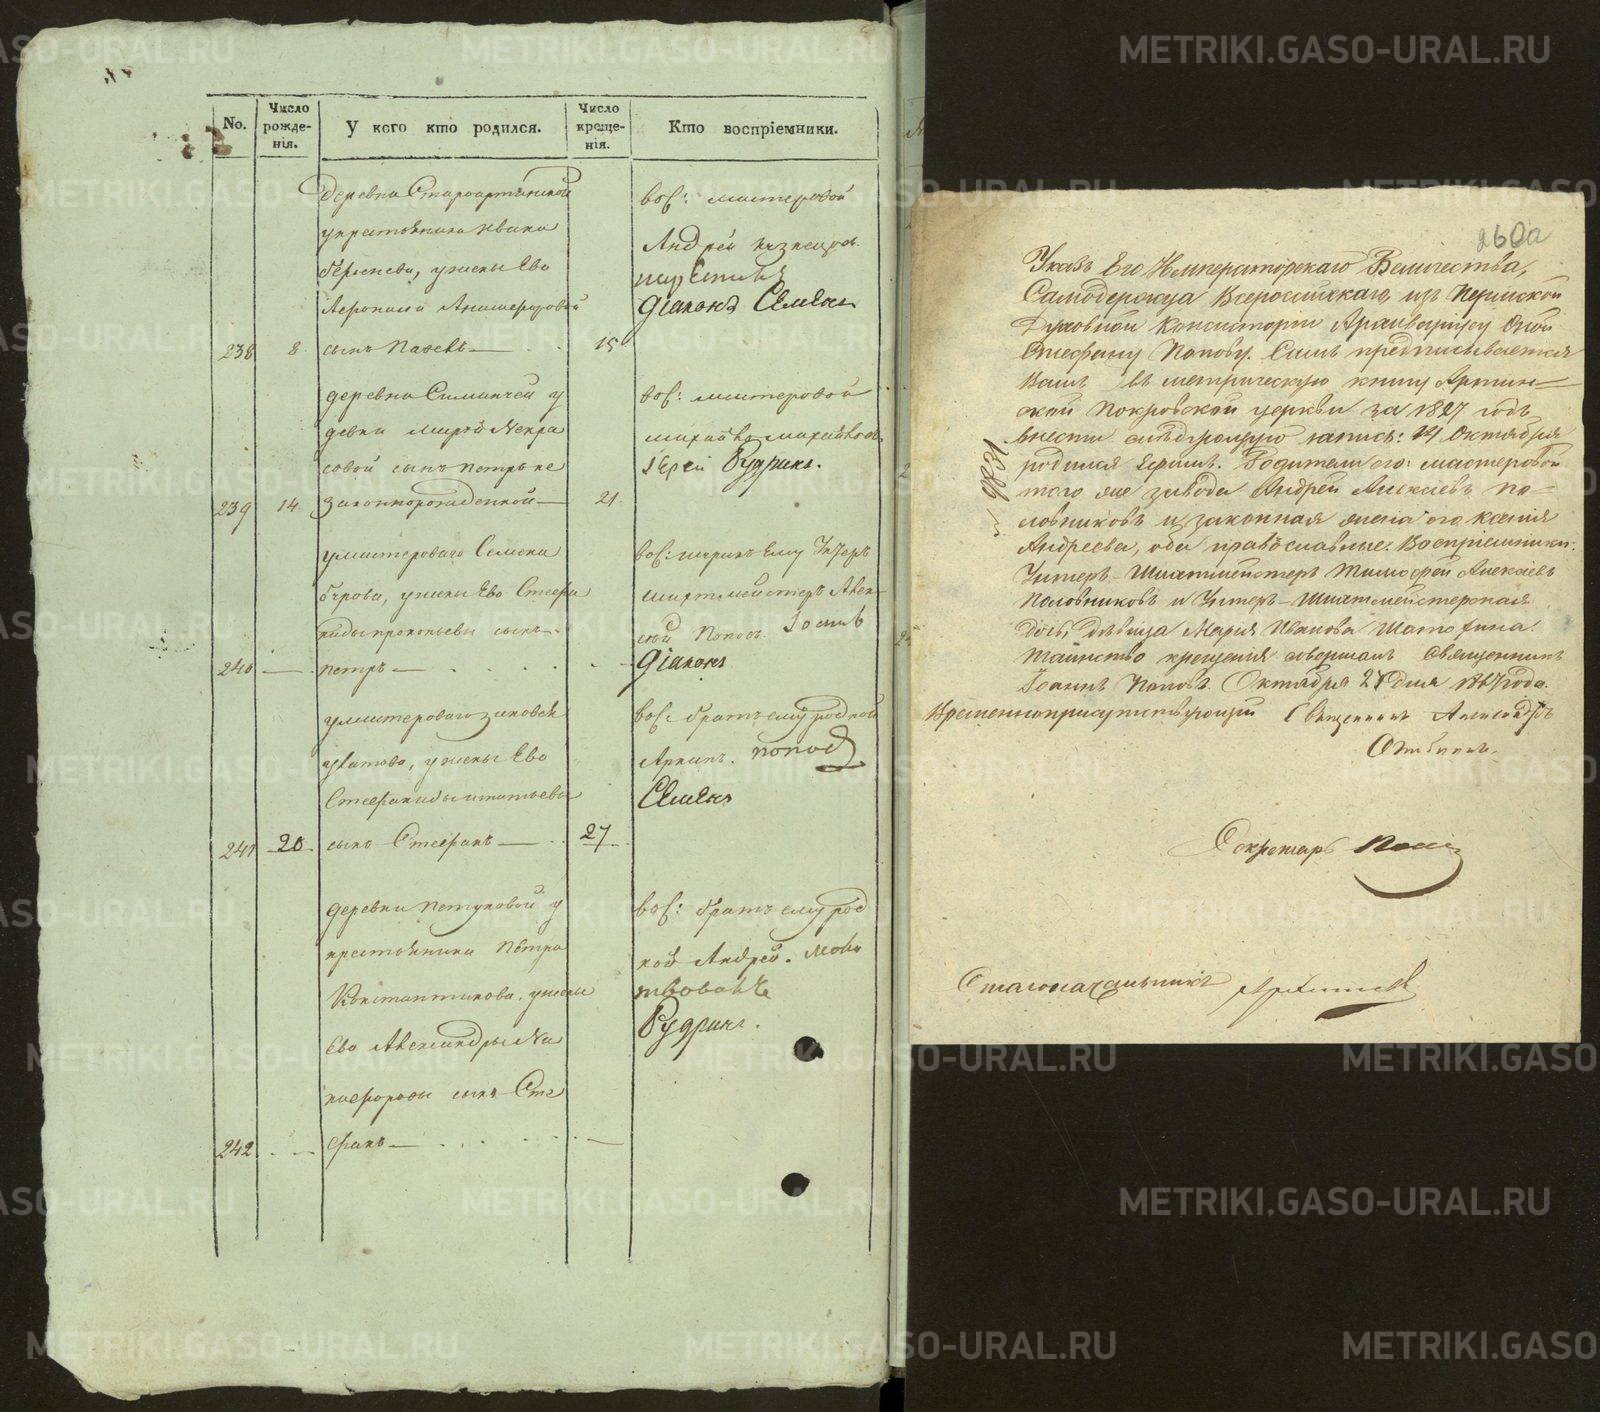 No.
Число рожде-нія.
У кого кто родился.
Число креще-нія.
Кто воспріемники.
деревни Староартинской
у крестьянина Ивана
у жены Ево
238 8 сынъ Павелъ 15
вос: мастеровой
Андрей Кузнецовъ
діаконъ Семенъ
деревни Симинчей у
девки Марьи Некра
совой сынъ Петръ не
239 14 законнорожденной 21
вос: мастеровой
Михайло Михайловъ
Іерей Рудринъ.
у мастероваго Семена
у жены Ево Стефа
ниды Прокопьевы сынъ
240 Петръ
вос: шуринъ Ему Унтеръ
шихтмейстеръ Алек
сѣй Поповъ.
діаконъ
у мастероваго Яковлѣ
у жены Ево
Стефаниды Игнатьевы
241 20 сынъ Стефанъ 27
вос: братъ ему родной
Архипъ. попов
Семенъ
деревни Петуховой у
крестьянина Петра
Константинова, у жены
Ево Александры Ни
кифоровы сынъ Сте
242 фанъ
вос: братъ ему род
ной Андрей. Моли
твовалъ
Рудринъ.
260а
Указъ Его Императорскаго Величества,
Самодержца Всероссійскаго, изъ Пермской
Духовной Консисторіи Архиваріусу Отцу
Стефану Попову. Симъ предписывается
Вамъ въ метрическую книгу Артин-
ской Покровской церкви за 1827 годъ
внести слѣдующую запись: 14 Октября
родился Ефимъ. Родители его: мастеровой
того же завода Андрей Алексѣевъ По-
ловниковъ и законная жена его Ксенія
Андреева, оба православные. Воспріемники:
Унтеръ-Шихтмейстеръ Тимофей Алексѣевъ
Половниковъ и Унтеръ-Шихтмейстерская
дочь, дѣвица Марія Иванова Шатохина.
Таинство крещенія совершалъ Священникъ
Іоаннъ Поповъ. Октября 21 дня 1827 года.
Временноприсутствующій Священникъ Александръ
Секретарь
Столоначальникъ